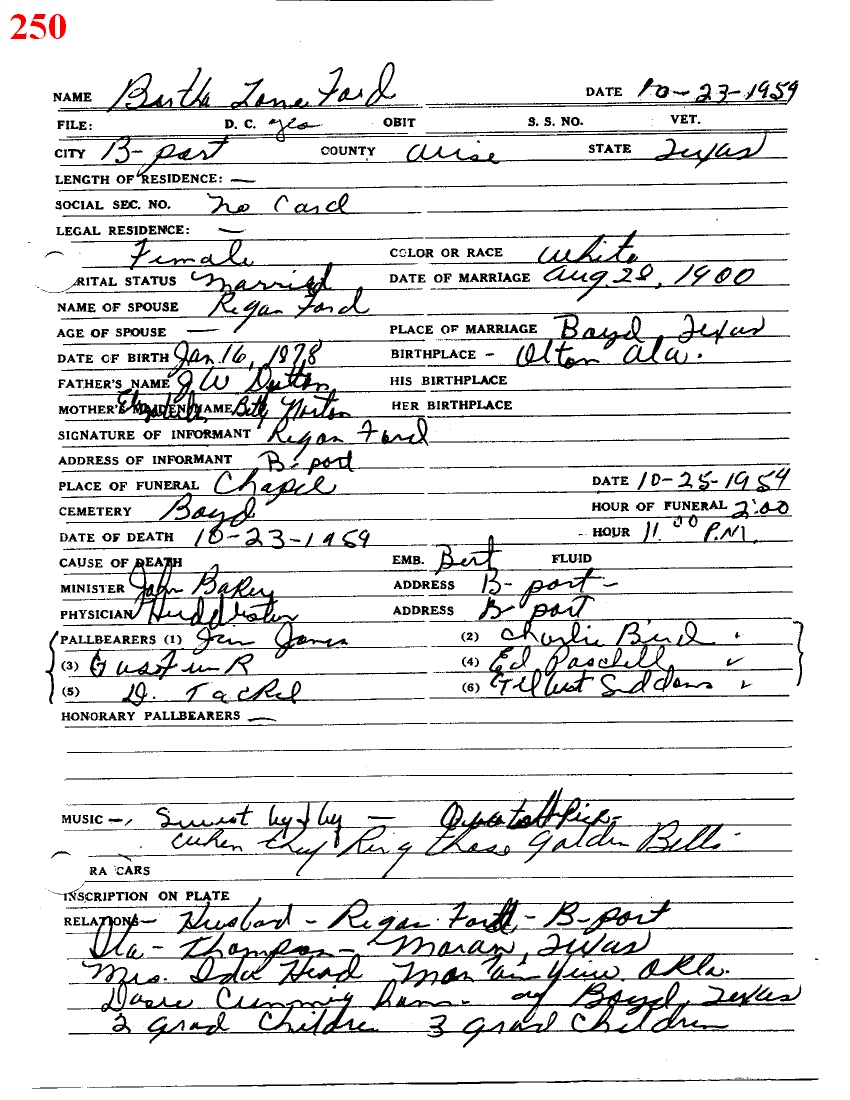 250
NAME Bertha Lona Ford DATE 10-23-1959
FILE: D. C. yes OBIT S. S. NO. VET.
CITY B-port COUNTY Wise STATE Texas
LENGTH OF RESIDENCE: —
SOCIAL SEC. NO. no Card
LEGAL RESIDENCE: —
Female COLOR OR RACE White
RITAL STATUS Married DATE OF MARRIAGE Aug 28, 1900
NAME OF SPOUSE Regan Ford
AGE OF SPOUSE — PLACE OF MARRIAGE Boyd, Texas
DATE OF BIRTH Jan 16, 1878 BIRTHPLACE - Olton Ala.
FATHER'S NAME J W Dutton HIS BIRTHPLACE
MOTHER'S MAIDEN NAME Elizabeth Betty Norton HER BIRTHPLACE
SIGNATURE OF INFORMANT Regan Ford
ADDRESS OF INFORMANT B-port
PLACE OF FUNERAL Chapel DATE 10-25-1959
CEMETERY Boyd HOUR OF FUNERAL 2:00
DATE OF DEATH 10-23-1959 HOUR 11 00 P.M.
CAUSE OF DEATH EMB. Bert FLUID
MINISTER John Baker ADDRESS B-port -
PHYSICIAN Huddleston ADDRESS B-port
PALLBEARERS (1) Jones (2) Charlie Bird
(3) Gus (4) Ed Paschall
(5) D. Tackel (6) Gilbert
HONORARY PALLBEARERS —
MUSIC —, Sweet by & by —
When they Ring those Golden Bells -
RA CARS
INSCRIPTION ON PLATE
RELATIONS — Husband - Regan Ford - B-port
Thompson - Moran, Texas
Mrs. Ida Head Mountain View Okla.
Cunningham of Boyd, Texas
2 grad Children 3 grad Children